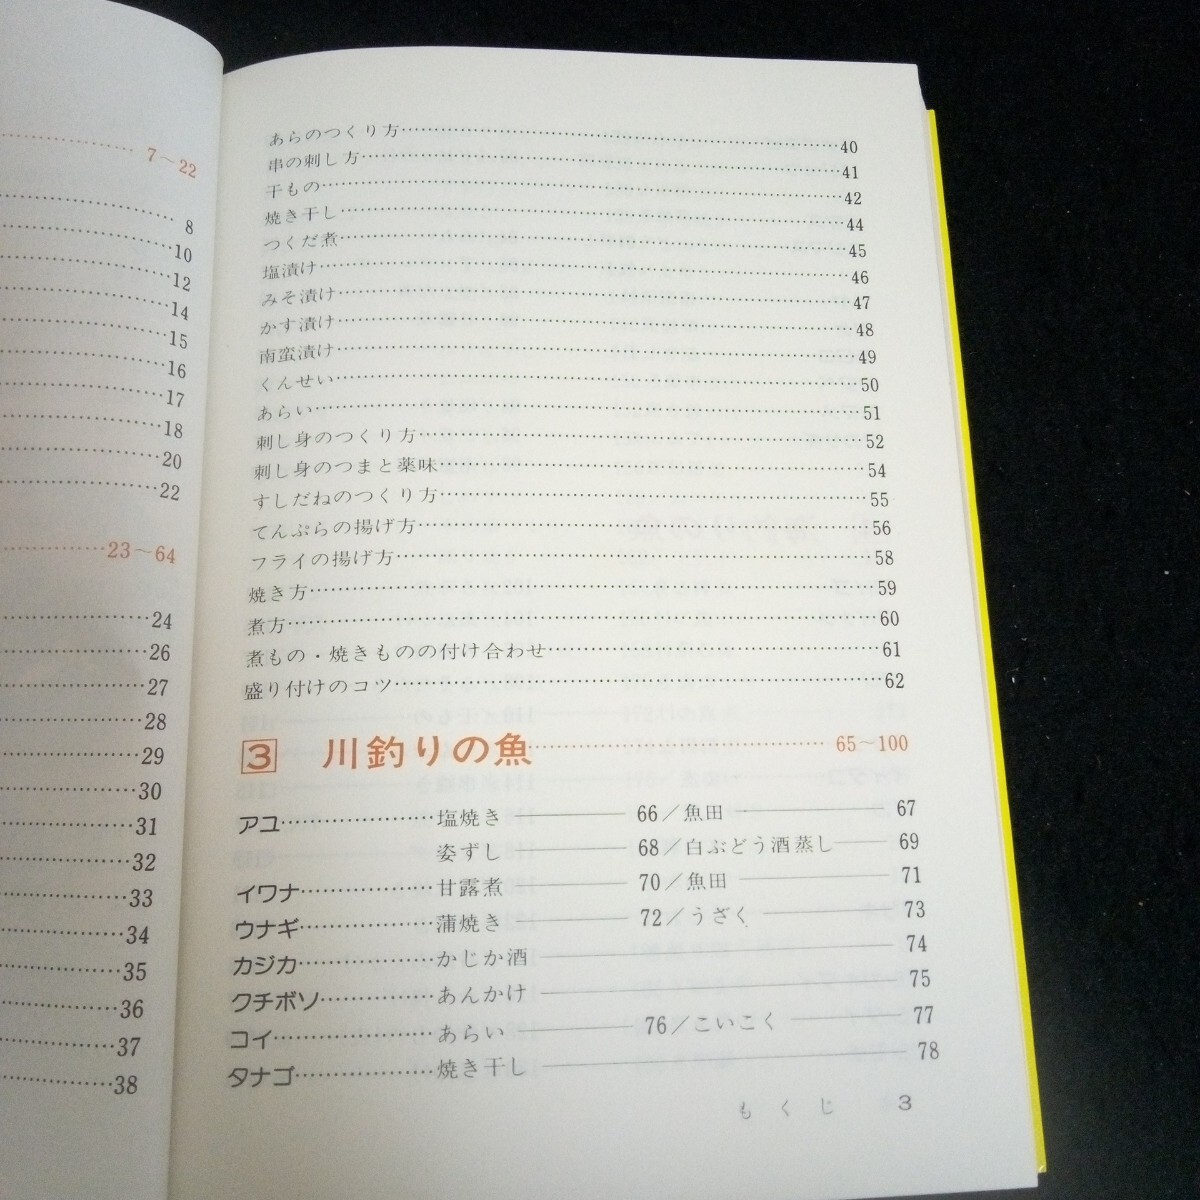 7～22
8
10
12
14
15
16
17
18
20
22
23～64
24
26
27
28
29
30
31
32
33
34
35
36
37
38
あらのつくり方……40
串の刺し方……41
干もの……42
焼き干し……44
つくだ煮……45
塩漬け……46
みそ漬け……47
かす漬け……48
南蛮漬け……49
くんせい……50
あらい……51
刺し身のつくり方……52
刺し身のつまと薬味……54
すしだねのつくり方……55
てんぷらの揚げ方……56
フライの揚げ方……58
焼き方……59
煮方……60
煮もの・焼きものの付け合わせ……61
盛り付けのコツ……62
3 川釣りの魚……65～100
アユ……塩焼き――66／魚田――67
姿ずし――68／白ぶどう酒蒸し――69
イワナ……甘露煮――70／魚田――71
ウナギ……蒲焼き――72／うざく――73
カジカ……かじか酒――74
クチボソ……あんかけ――75
コイ……あらい――76／こいこく――77
タナゴ……焼き干し――78
もくじ 3